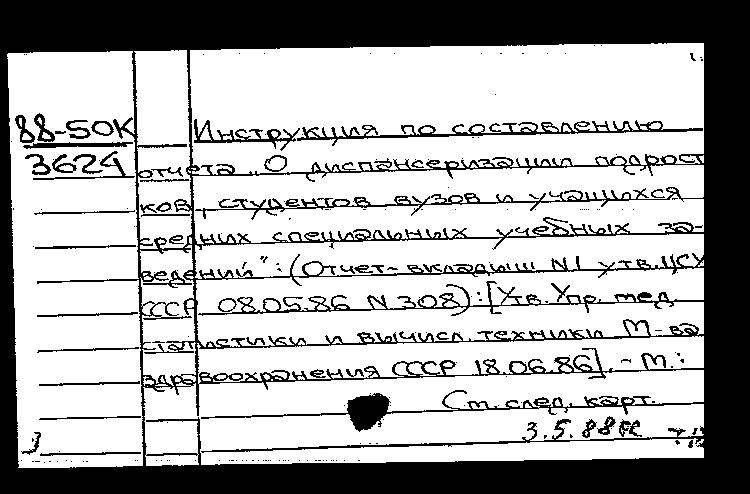 88-50К
3624
Инструкция по составлению
отчета „О диспансеризации подрост
ков, студентов вузов и учащихся
средних специальных учебных за-
ведений": (Отчет-вкладыш N1 утв. ЦСУ
СССР 08.05.86 N 308): [Утв. Упр. мед.
статистики и вычисл. техники М-ва
здравоохранения СССР 18.06.86]. - М.:
См. след. карт.
3.5.88